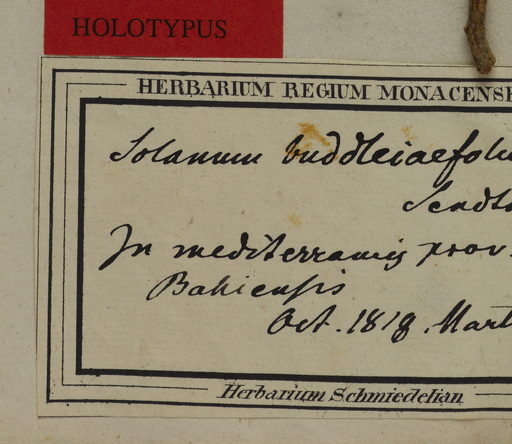 HOLOTYPUS
HERBARIUM REGIUM MONACENSE
Solanum buddleiaefoliu
Sendt
In mediterraneis prov.
Bahiensis
Oct. 1818. Mart
Herbarium Schmiedelian